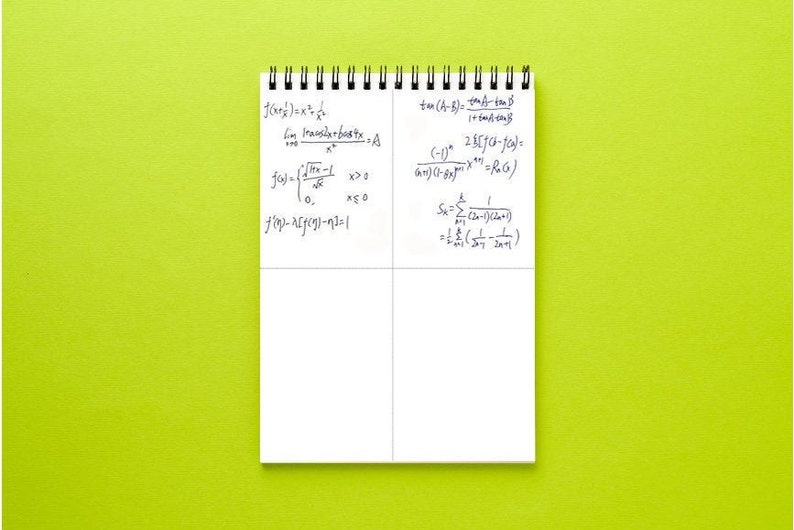 f(x+1/x)=x²+1/x²
lim x→0 (1+acos2x+bcos4x)/x² = A
f(x)={ (√(1+x)-1)/√x x>0
0, x≤0
f'(η)-λ[f(η)-η]=1
tan(A-B)=(tanA-tanB)/(1+tanA·tanB)
(-1)ⁿ/((n+1)(1-θx)ⁿ⁺¹) xⁿ⁺¹ = Rn(x)
Sk=Σ n=1 k 1/((2n-1)(2n+1))
=1/2 Σ n=1 k (1/(2n-1) - 1/(2n+1))